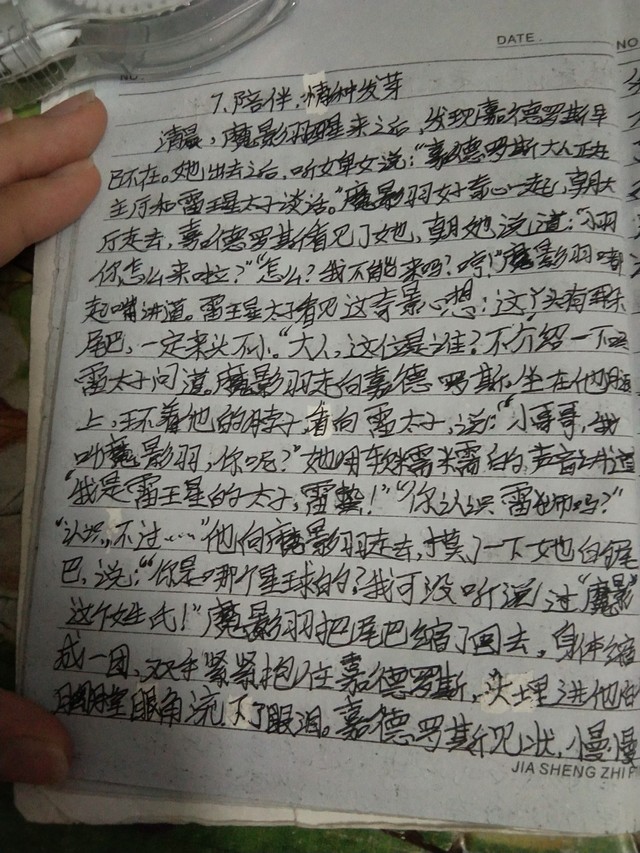 DATE.
NO
NO.
7.陪伴,情种发芽
清晨,魔影羽醒来之后,发现嘉德罗斯早
已不在。她出去之后,听女单女说:“嘉德罗斯大人正在
主厅和雷王星太子谈话。”魔影羽好奇心一起,朝大
厅走去,嘉德罗斯看见了她,朝她说道:“小羽
你怎么来啦?”“怎么?我不能来吗?哼!”魔影羽嘟
起嘴讲道。雷王星太子看见这奇景心想:这丫头有
尾巴,一定来头不小。“大人,这位是谁?不介绍一下
雷太子问道。魔影羽走向嘉德罗斯,坐在他腿
上,环着他的脖子,看向雷太子,说:“小哥哥,我
叫魔影羽,你呢?”她用软糯糯的声音讲道
“我是雷王星的太子,雷蛰!”“你认识雷狮吗?”
“认识,不过……”他向魔影羽走去,摸了一下她的尾
巴,说:“你是哪个星球的?我可没听说过“魔影”
这个姓氏!”魔影羽把尾巴缩了回去。身体缩
成一团,双手紧紧抱住嘉德罗斯,头埋进他的
胸膛 眼角流下了眼泪。嘉德罗斯见状,慢慢
JIA SHENG ZHI P